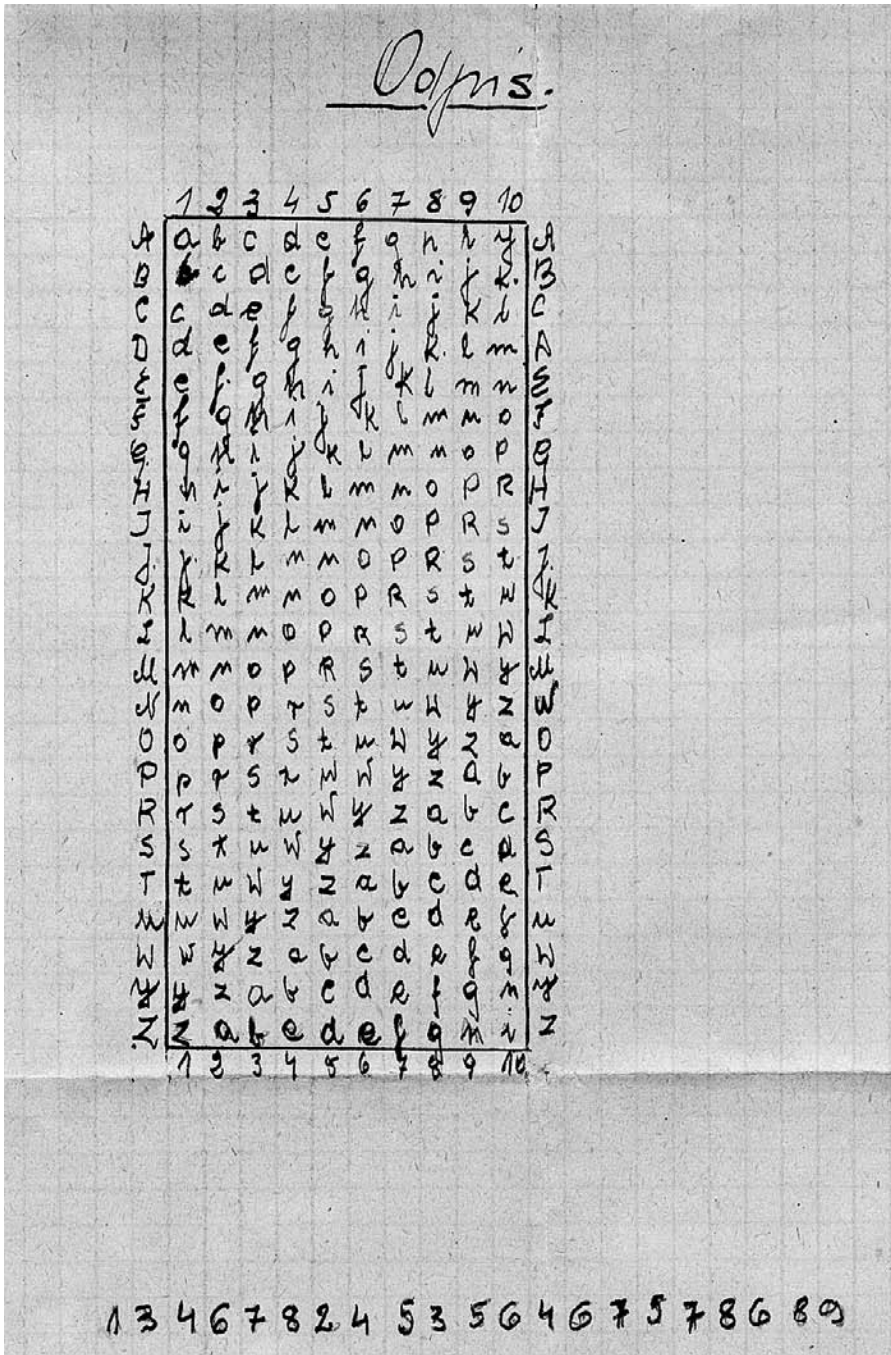 Odpis.
1 2 3 4 5 6 7 8 9 10
A a b c d e f g h i y A
B b c d e f g h i j k. B
C c d e f g h i j k l C
D d e f g h i j k. l m D
E e f g h i j k l m n E
F f g h i j k l m n o F
G g h i j k l m n o p G
H h i j k l m n o p R H
I i j k l m n o p R s I
J j k l m n o p R s t J
K k l m n o p R s t u K
L l m n o p R s t u w L
M m n o p R s t u w y M
N n o p r s t u w y z N
O o p r s t u w y z a O
P p r s t u w y z a b P
R r s t u w y z a b c R
S s t u w y z a b c d S
T t u w y z a b c d e T
U u w y z a b c d e f U
W w y z a b c d e f g W
Y y z a b c d e f g h Y
Z z a b c d e f g h i Z
1 2 3 4 5 6 7 8 9 10
1 3 4 6 7 8 2 4 5 3 5 6 4 6 7 5 7 8 6 8 9